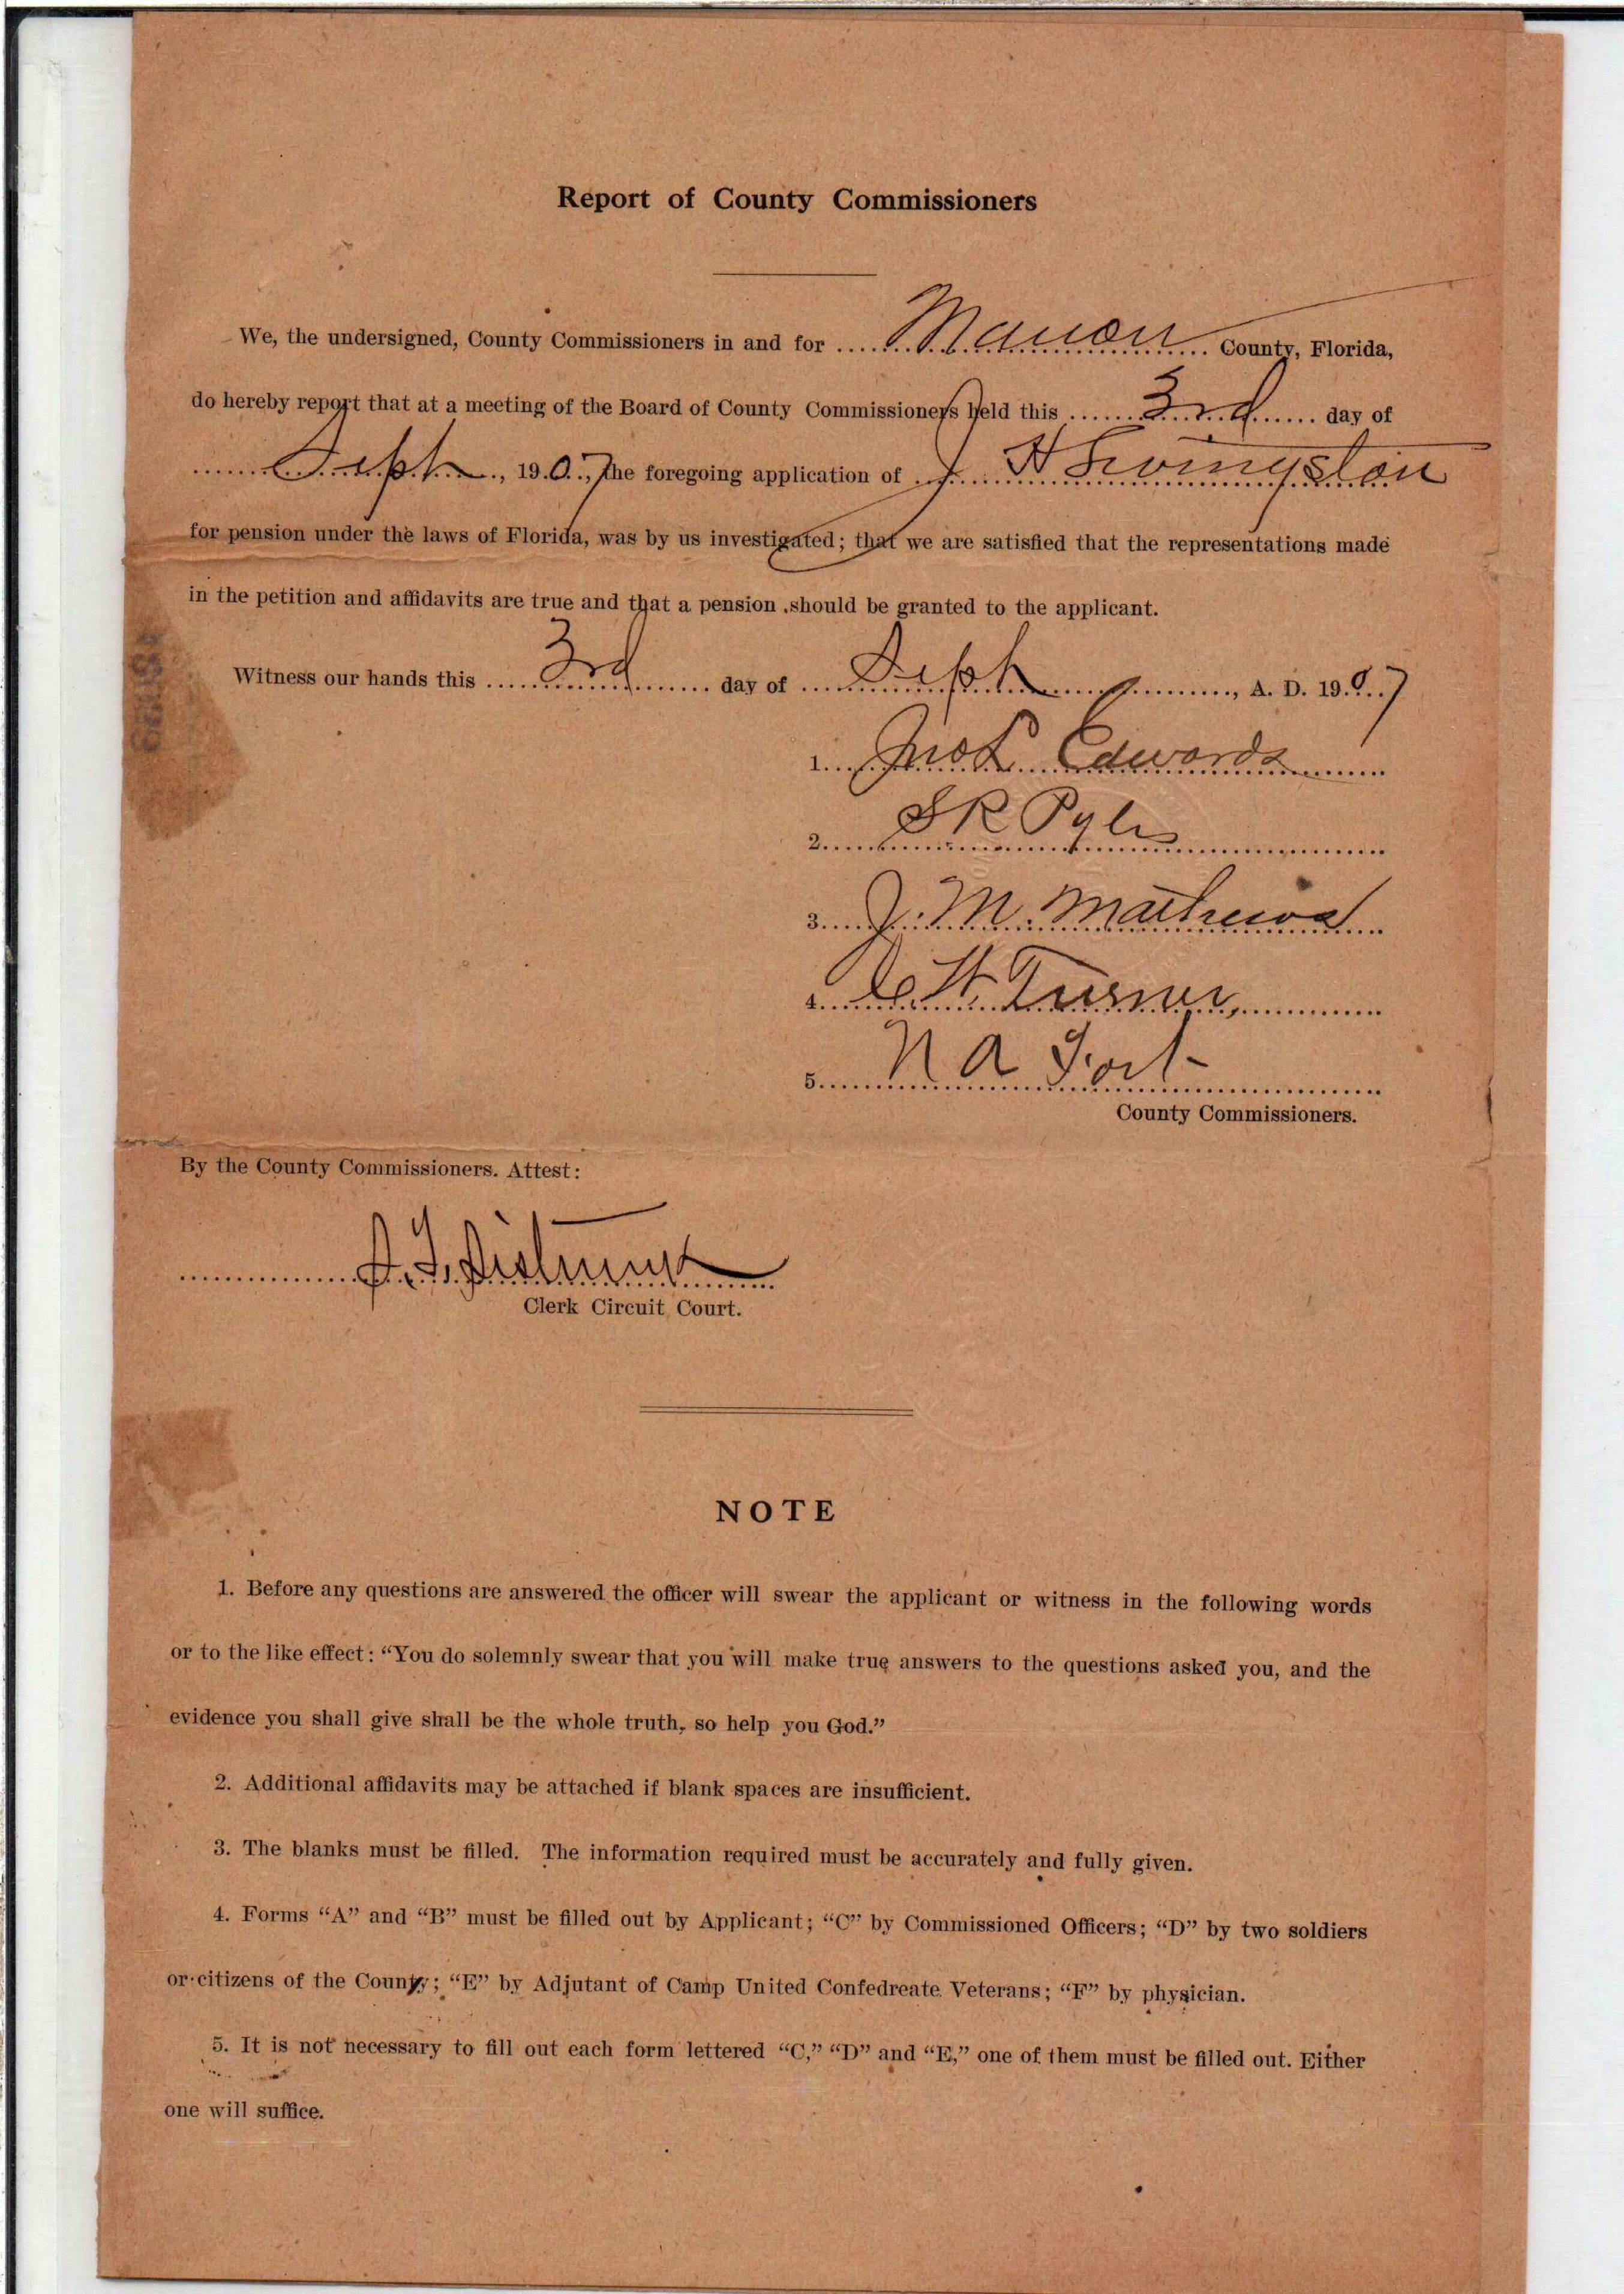 Report of County Commissioners
We, the undersigned, County Commissioners in and for Marion County, Florida,
do hereby report that at a meeting of the Board of County Commissioners held this 3rd day of
Sept, 1907, the foregoing application of J H Livingston
for pension under the laws of Florida, was by us investigated; that we are satisfied that the representations made
in the petition and affidavits are true and that a pension should be granted to the applicant.
Witness our hands this 3rd day of Sept, A. D. 1907
1. Jno L Edwards
2. S R Pyles
3. J. M. Mathews
4. Turner,
5. N A Fort
County Commissioners.
By the County Commissioners. Attest:
S. T. Sistrunk
Clerk Circuit Court.
NOTE
1. Before any questions are answered the officer will swear the applicant or witness in the following words
or to the like effect: “You do solemnly swear that you will make true answers to the questions asked you, and the
evidence you shall give shall be the whole truth, so help you God.”
2. Additional affidavits may be attached if blank spaces are insufficient.
3. The blanks must be filled. The information required must be accurately and fully given.
4. Forms “A” and “B” must be filled out by Applicant; “C” by Commissioned Officers; “D” by two soldiers
or citizens of the County; “E” by Adjutant of Camp United Confedreate Veterans; “F” by physician.
5. It is not necessary to fill out each form lettered “C,” “D” and “E,” one of them must be filled out. Either
one will suffice.